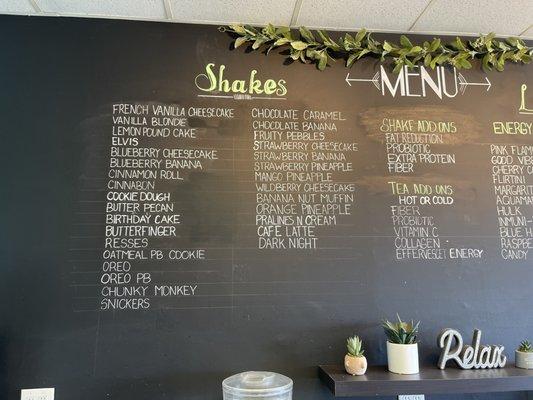 Shakes
FRENCH VANILLA CHEESECAKE
VANILLA BLONDIE
LEMON POUND CAKE
ELVIS
BLUEBERRY CHEESECAKE
BLUEBERRY BANANA
CINNAMON ROLL
CINNABON
COOKIE DOUGH
BUTTER PECAN
BIRTHDAY CAKE
BUTTERFINGER
RESSES
OATMEAL PB COOKIE
OREO
OREO PB
CHUNKY MONKEY
SNICKERS
CHOCOLATE CARAMEL
CHOCOLATE BANANA
FRUITY PEBBLES
STRAWBERRY CHEESECAKE
STRAWBERRY BANANA
STRAWBERRY PINEAPPLE
MANGO PINEAPPLE
WILDBERRY CHEESECAKE
BANANA NUT MUFFIN
ORANGE PINEAPPLE
PRALINES N CREAM
CAFE LATTE
DARK NIGHT
MENU
SHAKE ADD ONS
FAT REDUCTION
PROBIOTIC
EXTRA PROTEIN
FIBER
TEA ADD ONS
HOT OR COLD
FIBER
PROBIOTIC
VITAMIN C
COLLAGEN
EFFERVESCET ENERGY
L
ENERGY
PINK FLAM
GOOD VIB
CHERRY C
FLIRTINI
MARGARIT
AQUAMA
HULK
INMUNI
BLUE H
RASPB
CANDY
Relax